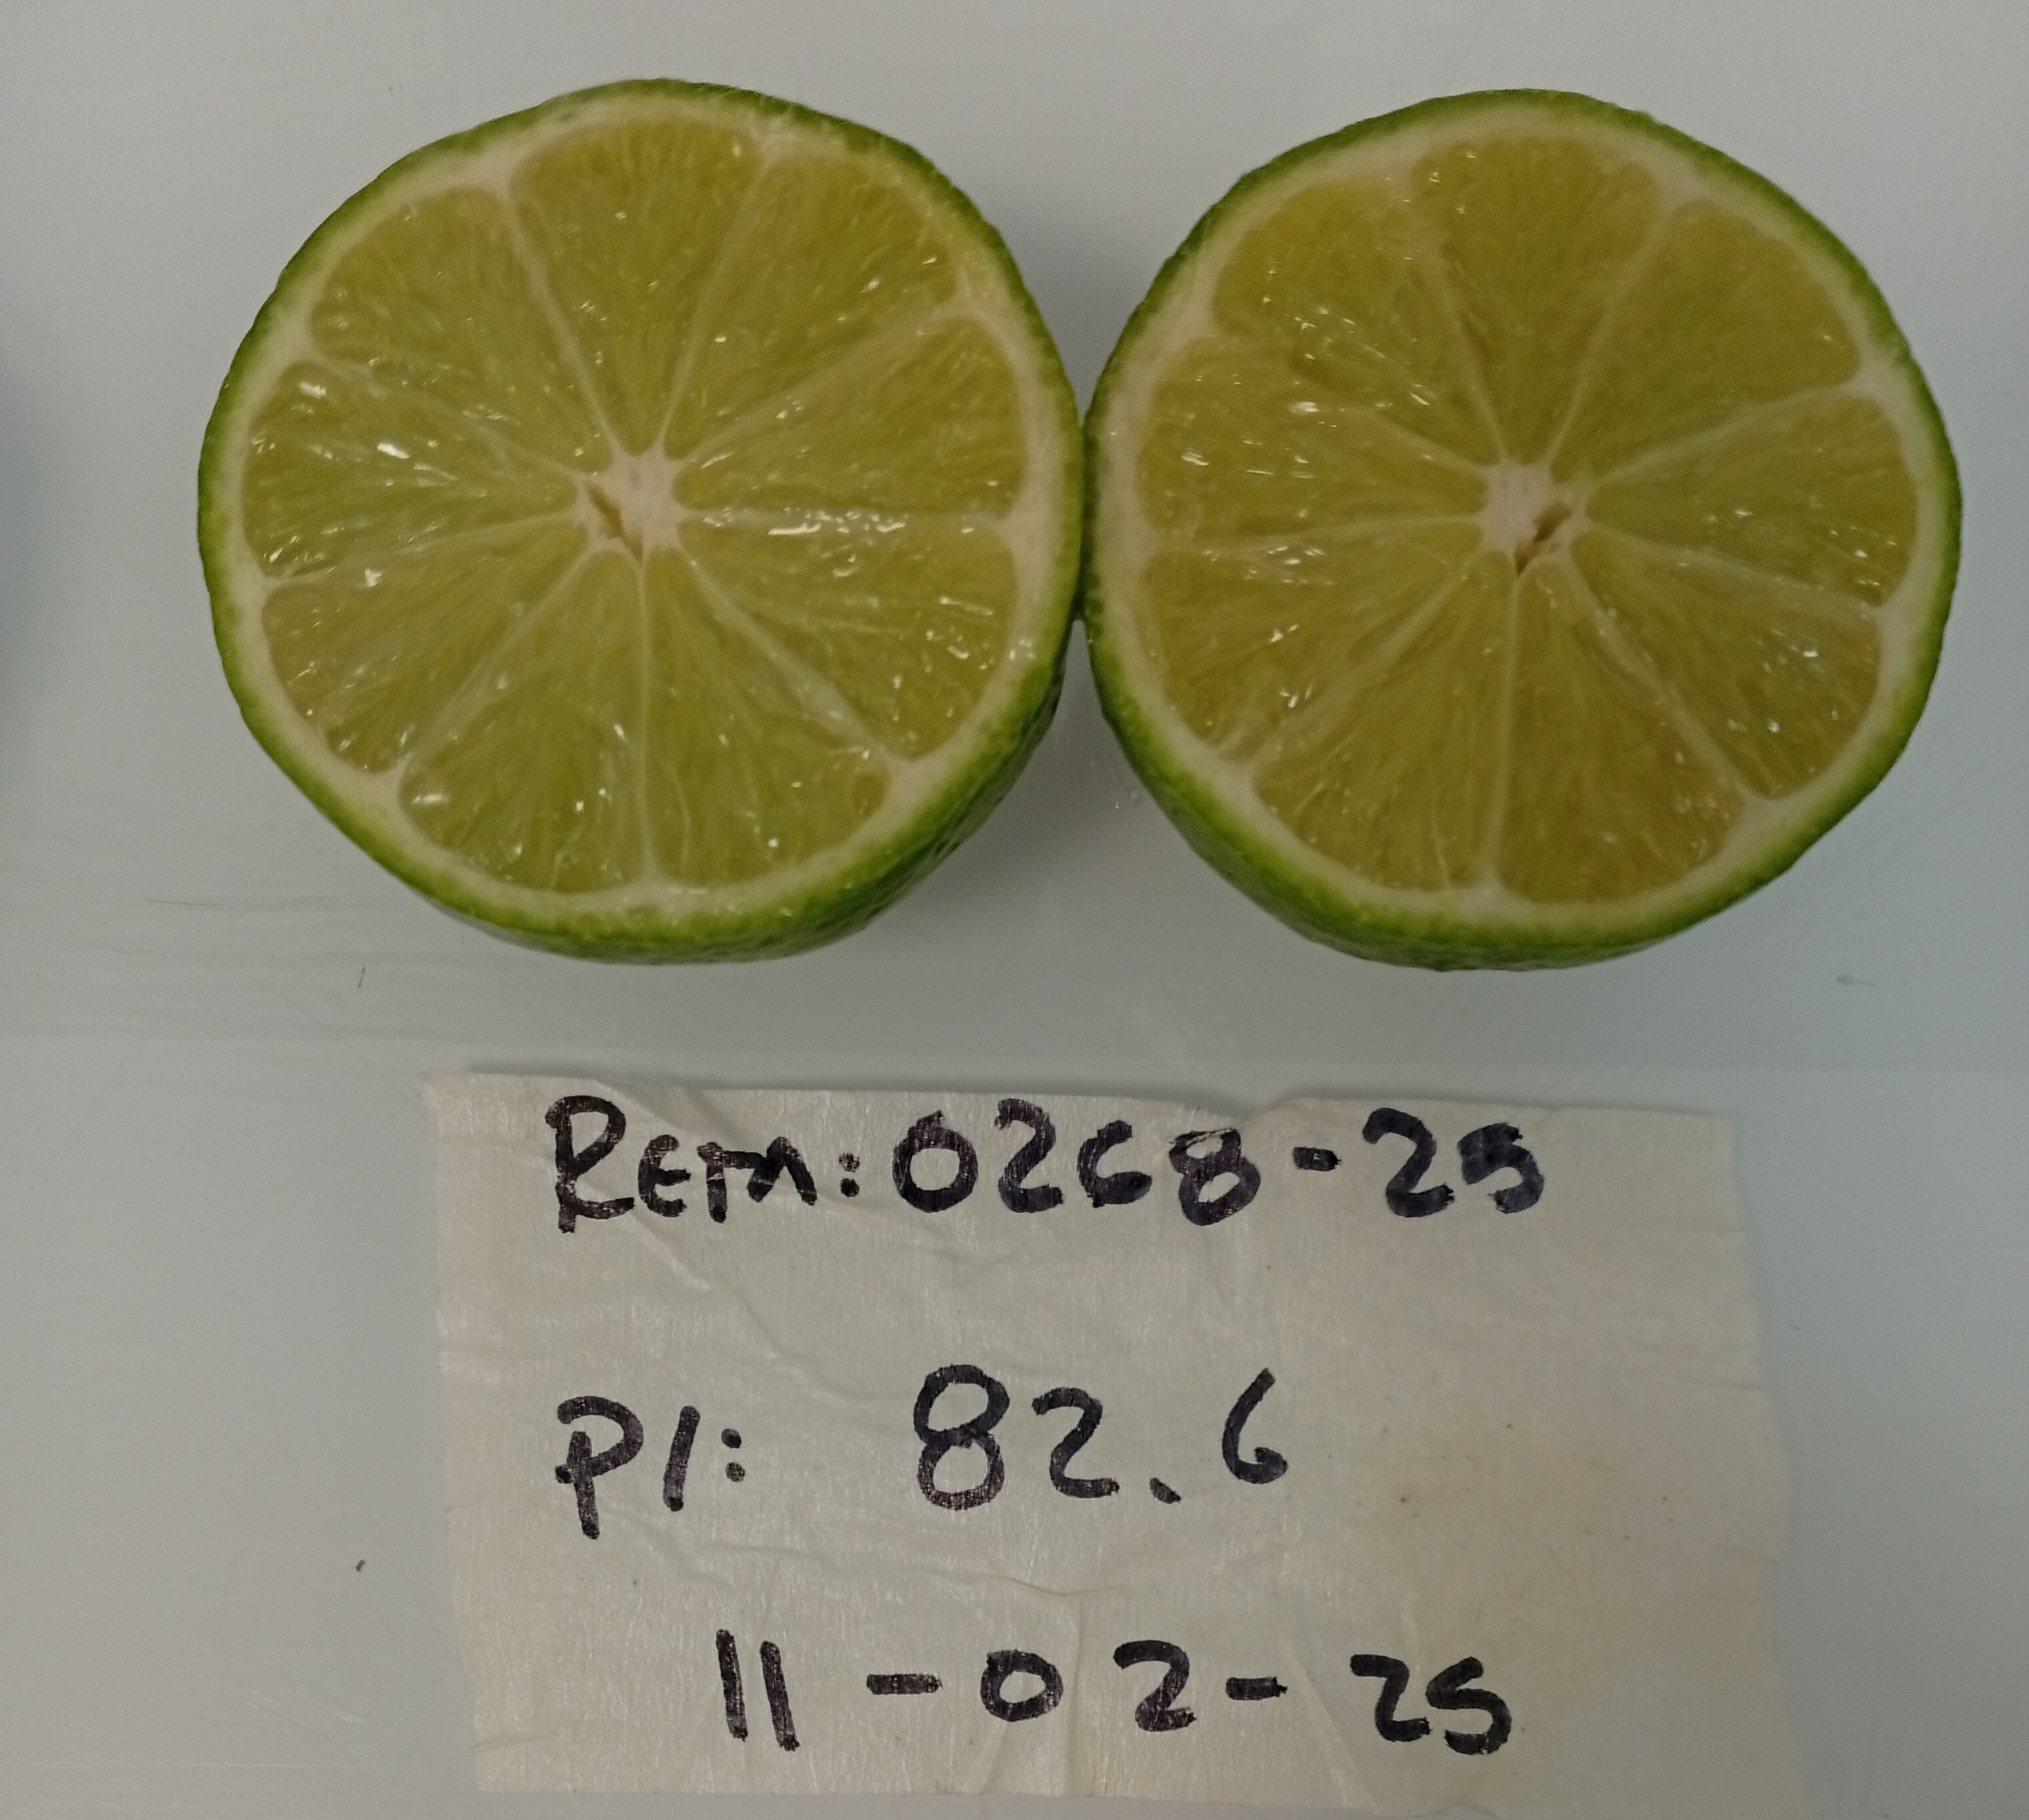 REM: 0268-25
PI: 82.6
11-02-25